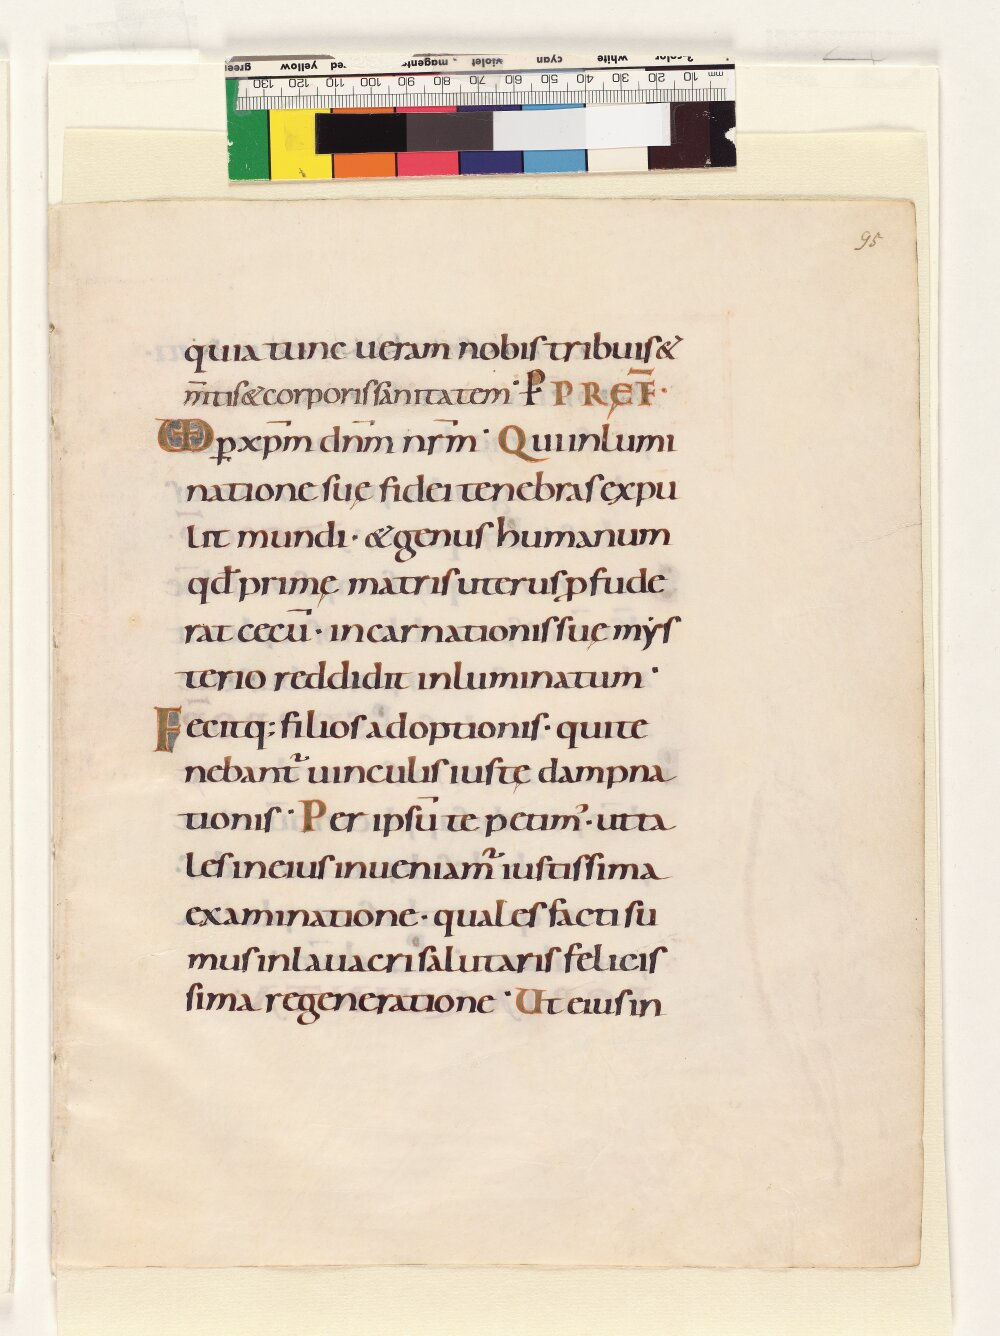 green yellow red magenta violet cyan white 3-color
130 120 110 100 90 80 70 60 50 40 30 20 10 mm
95
quia tunc ueram nobis tribuis &
m̄tis & corporis sanitatem · P PREF̄ ·
VD ꝑ xp̄m dn̄m nr̄m · Qui inlumi
natione suę fidei tenebras expu
lit mundi · & genus humanum
qđ primę matris uterus ꝓfude
rat cecū · incarnationis suę mẏs
terio reddidit inluminatum ·
Fecitq; filios adoptionis · qui te
nebant᷑ uinculis iustę dampna
tionis · Per ipsū te petim᷑ · ut ta
les in eius inueniam᷑ iustissima
examinatione · quales facti su
mus in lauacri salutaris felicis
sima regeneratione · Ut eius in